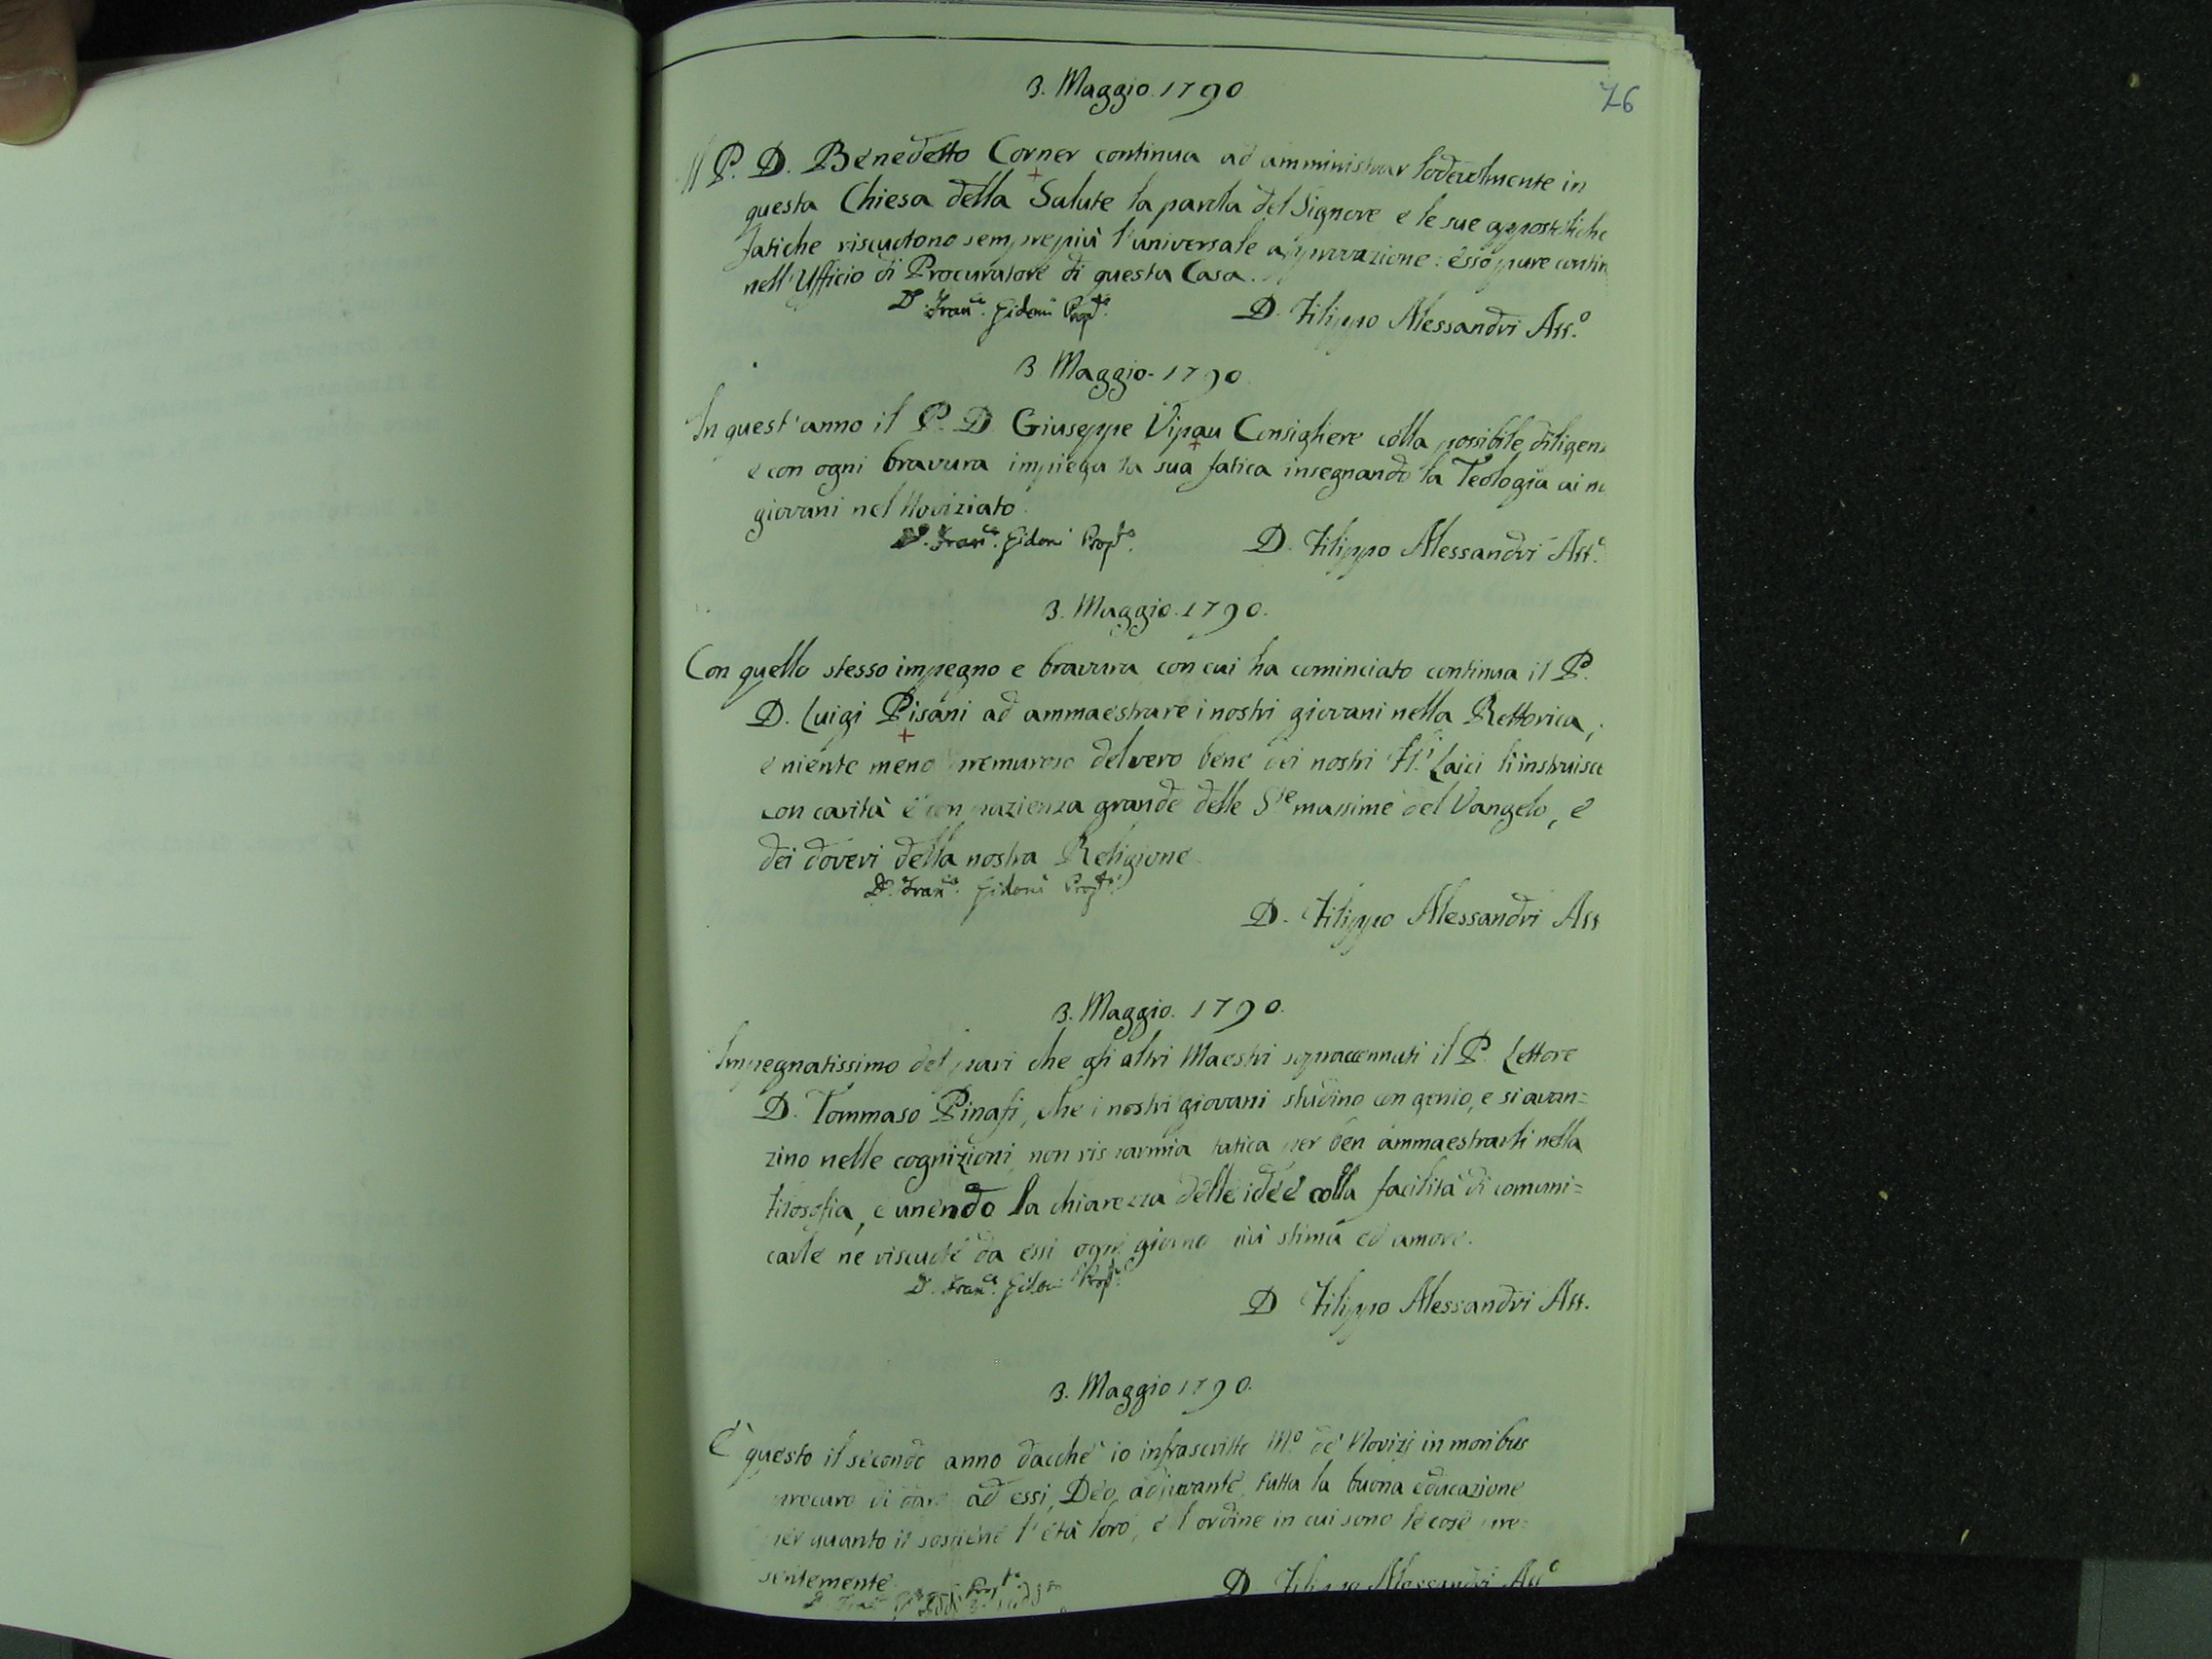 76
3. Maggio. 1790
Il P. D. Benedetto Corner continua ad amministrar lodevolmente in
questa Chiesa della Salute la parola del Signore e le sue appostoliche
fatiche riscuotono semprepiù l'universale approvazione: esso pure contin
nell'Ufficio di Procuratore di questa Casa.
D. Fran.co Gidoni Prop.to D. Filippo Alessandri Att.o
3 Maggio. 1790
In quest'anno il P. D. Giuseppe Vipau Consigliere colla possibile diligen
e con ogni bravura impiega la sua fatica insegnando la Teologia ai n
giovani nel Noviziato.
D. Fran.co Gidoni Prop.to D. Filippo Alessandri Att.o
3. Maggio. 1790.
Con quello stesso impegno e bravura con cui ha cominciato continua il P.
D. Luigi Pisani ad ammaestrare i nostri giovani nella Rettorica,
e niente meno premuroso del vero bene dei nostri Fr.i Laici li instruisce
con carità e con pazienza grande delle S.te massime del Vangelo, e
dei doveri della nostra Religione.
D. Fran.co Gidoni Prop.to
D. Filippo Alessandri Att
3. Maggio. 1790.
Impegnatissimo del pari che gli altri Maestri sopraccennati il P. Lettore
D. Tommaso Pinafi, che i nostri giovani studino con genio, e si avan=
zino nelle cognizioni, non risparmia fatica per ben ammaestrarli nella
filosofia, e unendo la chiarezza delle idée colla facilità di comuni=
carle ne riscuote da essi ogni giorno più stima ed amore.
D. Fran.co Gidoni Prop.to
D Filippo Alessandri Att.
3. Maggio 1790.
È questo il secondo anno dacchè io infrascritto M.o de' Novizj in moribus
procuro di dare ad essi, Deo adjuvante, tutta la buona educazione
per quanto il sostiene l'età loro, e l'ordine in cui sono le cose pre=
sentemente.
D. Filippo Alessandri Att.o